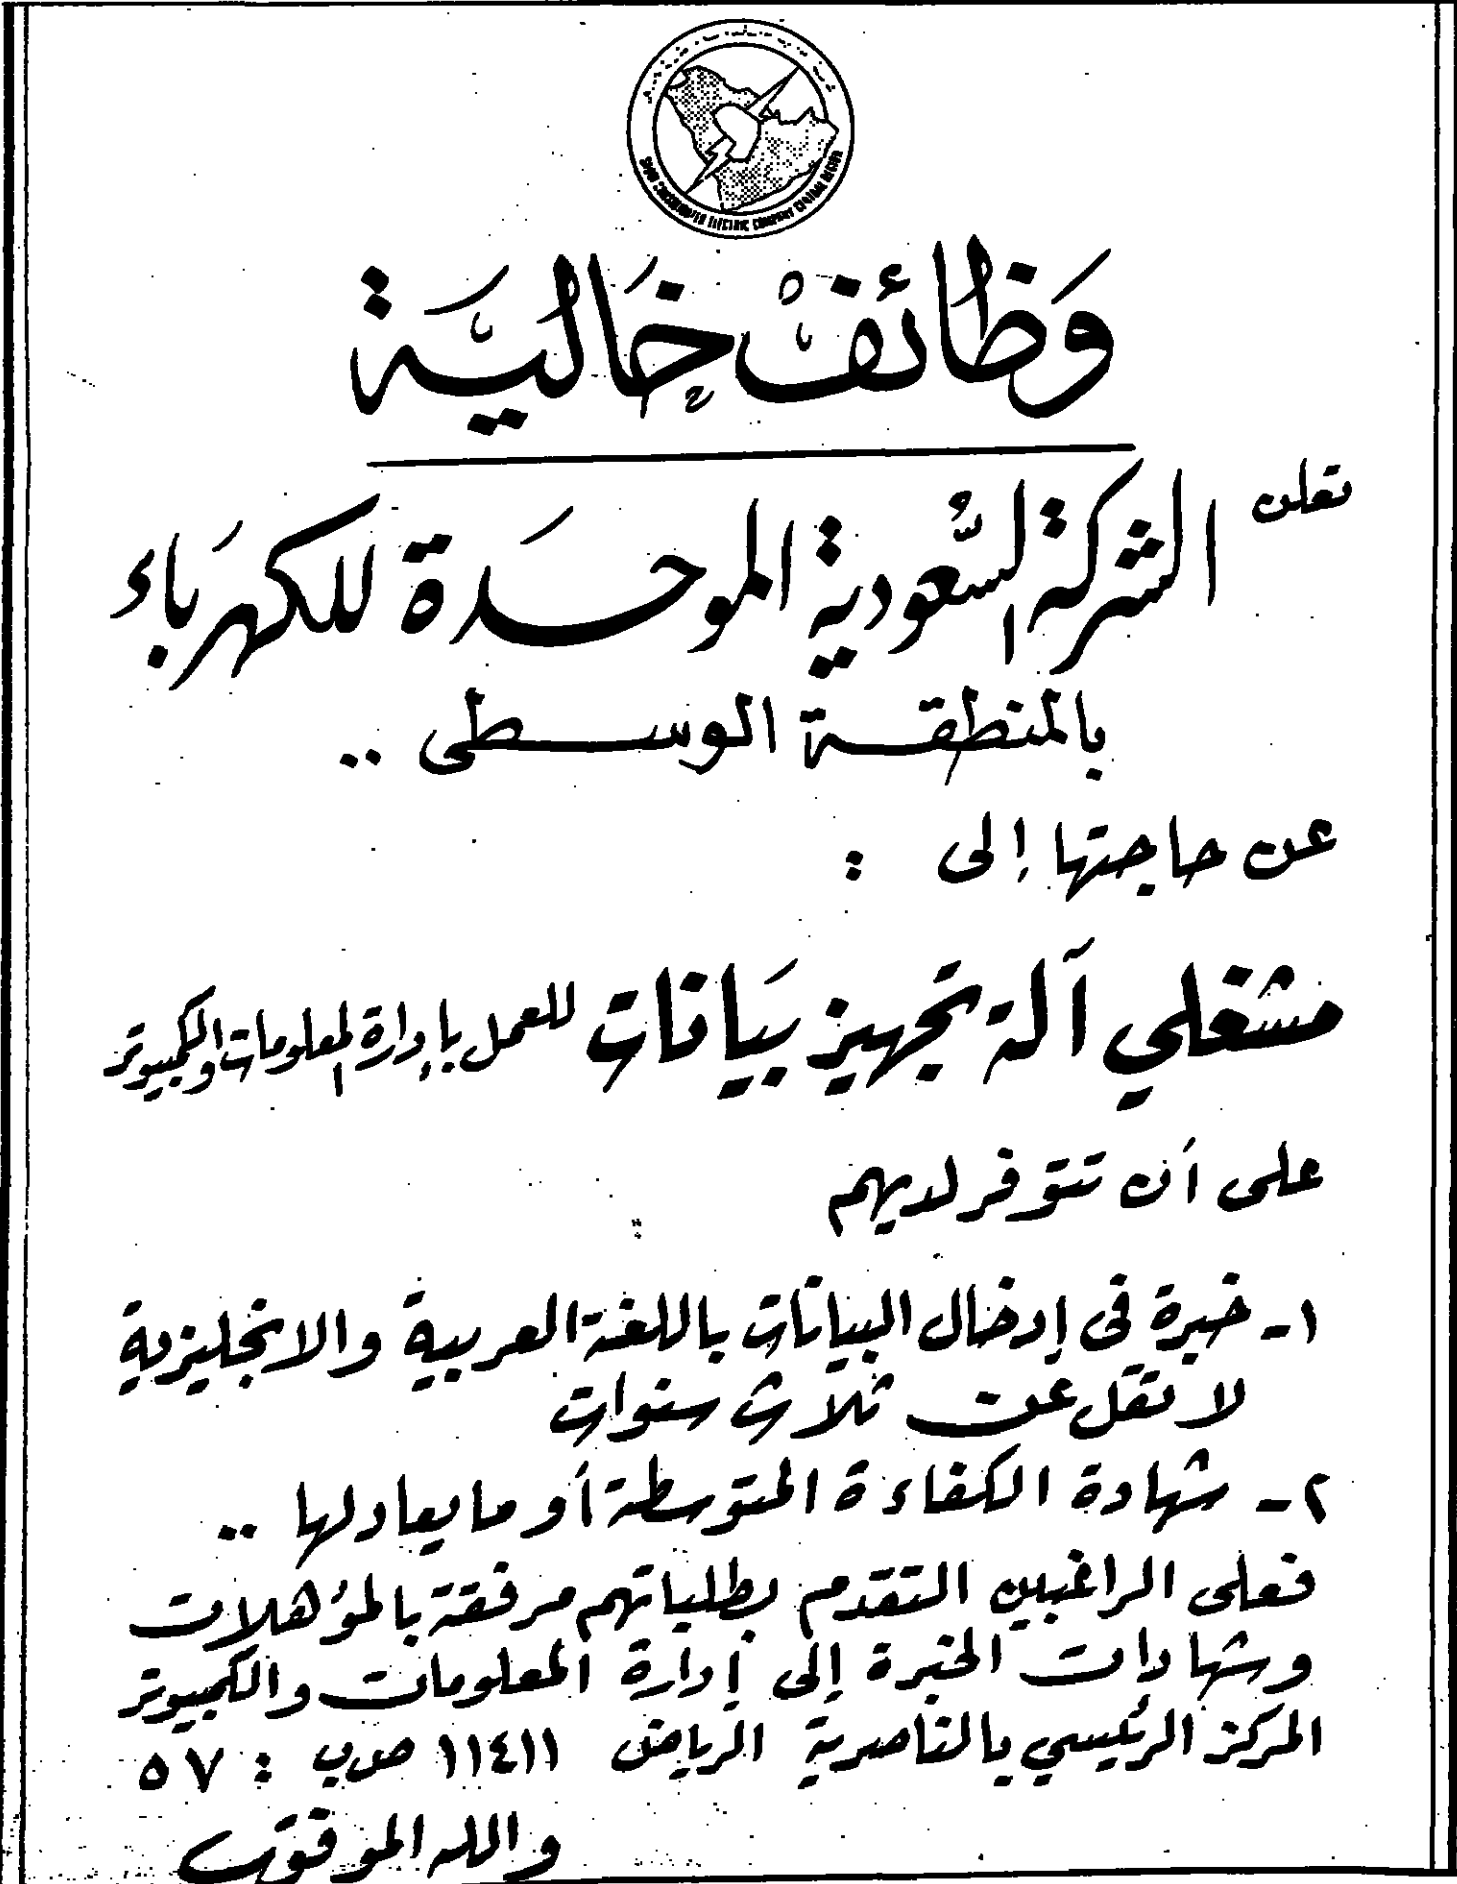 SAUDI CONSOLIDATED ELECTRIC COMPANY CENTRAL REGION
وَظائفْ خَاليَة
تعلن الشركة السعودية الموحدة للكهرباء
بالمنطقة الوسطى ..
عن حاجتها إلى :
مشغلي آلة تجهيز بيانات للعمل بإدارة المعلومات والكمبيوتر
على أن تتوفر لديهم
١- خبرة في إدخال البيانات باللغة العربية والانجليزية
لا تقل عن ثلاث سنوات
٢- شهادة الكفاءة المتوسطة أو ما يعادلها ..
فعلى الراغبين التقدم بطلباتهم مرفقة بالمؤهلات
وشهادات الخبرة إلى إدارة المعلومات والكمبيوتر
المركز الرئيسي بالناصرية الرياض ١١٤١١ ص.ب : ٥٧
والله الموفق